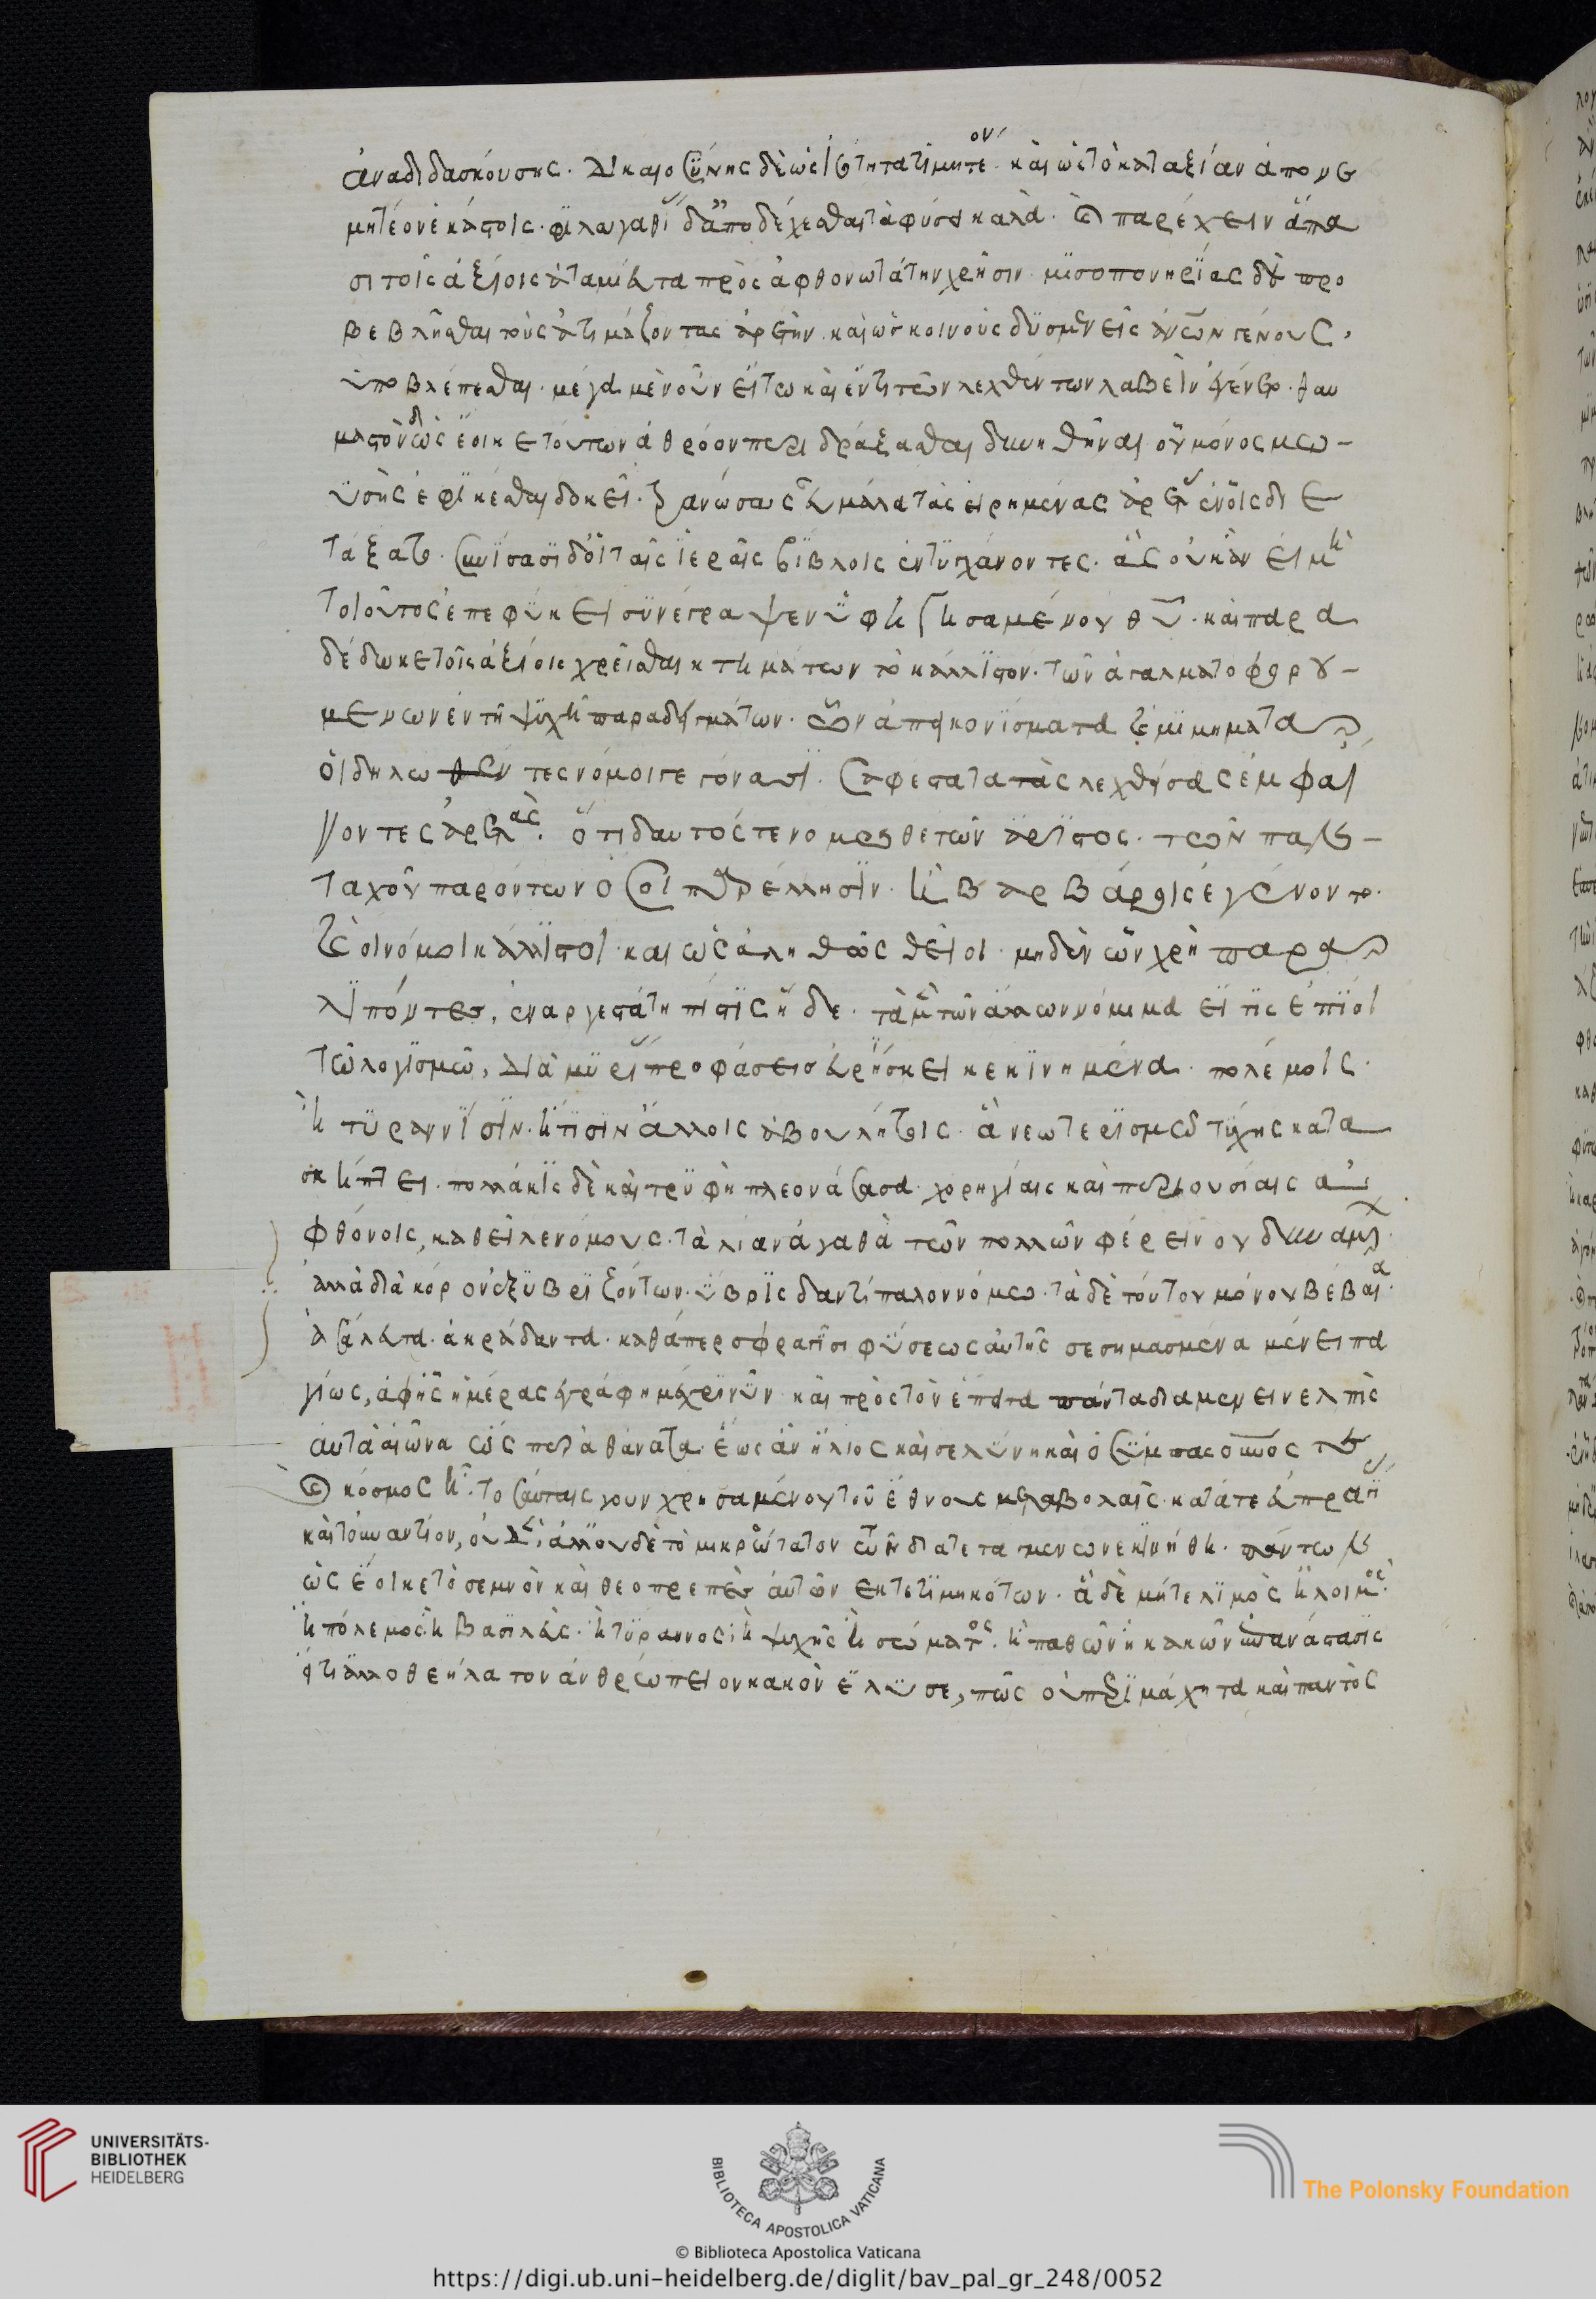 ἀναδιδασκούσης. δικαιοσύνης δὲ ὡς ἰσότητα τιμητέον· καὶ ὡς τὸ κατ αξίαν ἀπονε
μητέον ἑκάστοις. φιλαγαθί δ ἀποδέχεσθαι τὰ φύσει καλὰ. καὶ παρέχειν ἅπα
σι τοῖς ἀξίοις ἀταμίευτα πρὸς ἀφθονωτάτην χρῆσιν. μισοπονηρίας δὲ προ
βεβλῆσθαι τοὺς ἀτιμάζοντας ἀρετὴν. καὶ ὡς κοινοὺς δυσμενεῖς ἀνων γένους.
ὑποβλέπεσθαι. μέγα μὲν οὖν εἴ τω καὶ ἕν τι τῶν λεχθέντων λαβεῖν ἐγένετο. θαυ
μαστὸν δ ὡς ἔοικε τούτων ἀθρόον περιδράξασθαι δυνηθῆναι οὗ μόνος μω-
υσῆς ἐφικέσθαι δοκεῖ. τρανώσας εὖ μάλα τὰς εἰρημένας ἀρετ ἐν οἷς διε
τάξατο. συνίσασι δ οἱ ταῖς ἱεραῖς βίβλοις ἐντυγχάνοντες. ἃς οὐκ ἂν εἰ μὴ
τοιοῦτος ἐπεφύκει συνέγραψεν ὑφηγησαμένου θυ. καὶ παρα
δέδωκε τοῖς ἀξίοις χρῆσθαι κτημάτων τὸ κάλλιστον. τῶν ἀγαλματοφορου-
μενων ἐν τῇ ψυχῇ παραδειγμάτων. ὧν ἀπεικονίσματα καὶ μιμηματα
οἱ δηλωθέντες νόμοι γεγόνασι. σαφεστατα τὰς λεχθείσας ἐμφαί
νοντες ἀρετὰς. ὅτι δ αυτός τε νομοθετῶν ἄριστος. τῶν παν-
ταχοῦ παρόντων ὅσοι παρ ἕλλησιν. ἢ βαρβάροις ἐγένοντο.
καὶ οἱ νόμοι κάλλιστοι καὶ ὡς ἀληθῶς θεῖοι. μηδὲν ὧν χρὴ παρα
λιπόντες, ἐναργεστάτη πίστις ἥδε. τὰ μὲν τῶν ἄλλων νόμιμα εἴ τις ἐπίοι
τῷ λογισμῷ, διὰ μυρί προφάσεις εὑρήσκει κεκινημένα. πολέμοις.
ἢ τυραννίσιν. ἤ τισιν ἄλλοις ἀβουλήτοις. ἃ νεωτερισμῷ τύχης κατα
σκήπτει. πολλάκις δὲ καὶ τρυφὴ πλεονάσασα χορηγίαις καὶ περιουσίαις ἀ
φθόνοις, καθεῖλε νόμους. τὰ λίαν ἀγαθὰ τῶν πολλῶν φέρειν οὐ δυναμεν.
ἀλλὰ διὰ κόρον ἐξυβριζόντων. ὕβρις δ αντίπαλον νόμω. τὰ δὲ τούτου μόνου βέβαια.
ἀσάλευτα. ἀκράδαντα. καθάπερ σφραγῖσι φύσεως αὐτῆς σεσημασμένα μένει πα
γίως, ἀφ ἧς ἡμέρας ἐγράφη μέχρι νῦν καὶ πρὸς τὸν ἔπειτα πάντα διαμενειν ελπὶς
αὐτὰ αἰῶνα ὥσπερ ἀθάνατα. ἕως ἂν ἥλιος καὶ σελύνη καὶ ὁ σύμπας ουνος τε
καὶ κόσμος ᾖ. τοσαύταις γοῦν χρησαμένου τοῦ ἔθνους μεταβολαῖς κατά τε εὐπραγί
καὶ τουναντίον, οὐδὲν, ἀλλ οὐδὲ τὸ μικρώτατον τῶν διατεταγμενων ἐκινήθη. πάντων
ὡς ἔοικε τὸ σεμνὸν καὶ θεοπρεπὲς αὐτῶν εκτετιμηκότων. ἃ δὲ μήτε λιμὸς ἢ λοιμὸς.
ἢ πόλεμος. ἢ βασιλεὺς. ἢ τύραννος. ἢ ψυχῆς ἢ σώματος. ἢ παθῶν ἢ κακῶν ἐπανάστασις
ἤ τι ἄλλο θεήλατον ἀνθρώπειον κακὸν ἔλυσε, πῶς οὐ περιμάχητα καὶ παντὸς
UNIVERSITÄTS-
BIBLIOTHEK
HEIDELBERG
BIBLIOTECA APOSTOLICA VATICANA
The Polonsky Foundation
© Biblioteca Apostolica Vaticana
https://digi.ub.uni-heidelberg.de/diglit/bav_pal_gr_248/0052